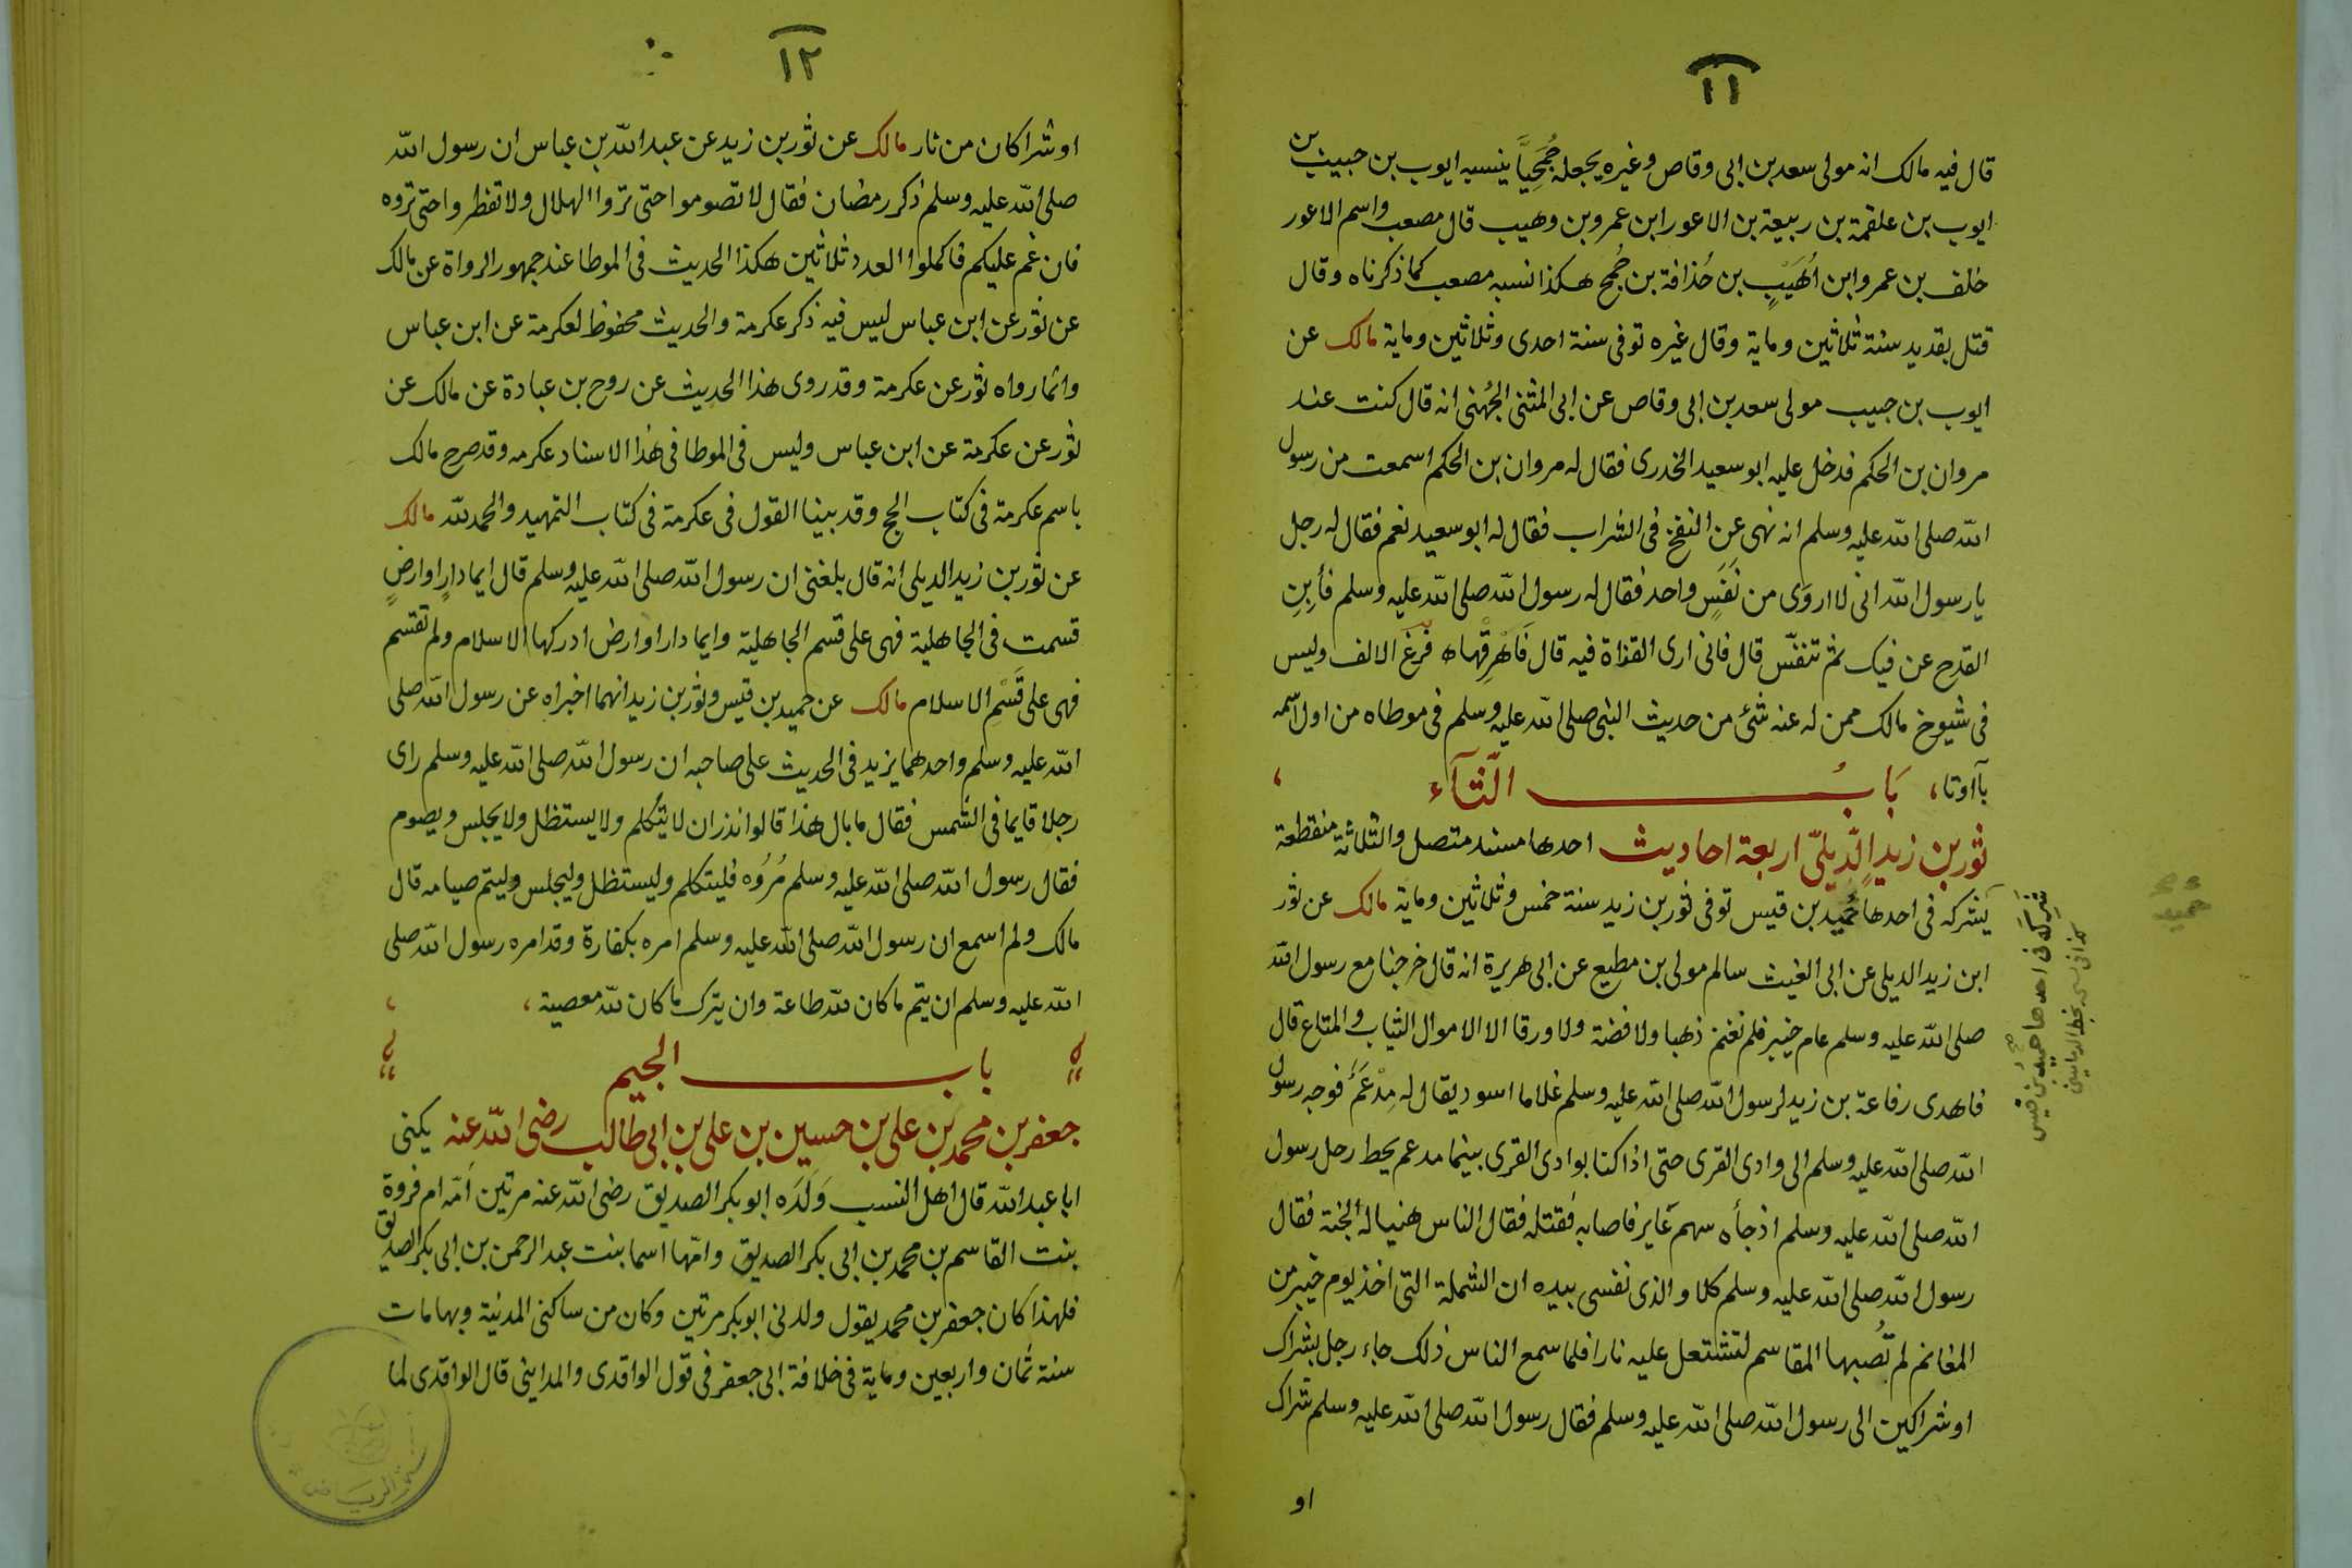 ١١
قال فيه مالك انه مولى سعد بن ابى وقاص وغيره يجعله جُمَحِيًّا ينسبه ايوب بن حبيب بن
ايوب بن علقمة بن ربيعة بن الاعور ابن عمرو بن وهيب قال مصعب واسم الاعور
خلف بن عمرو ابن اُهَيبٍ بن حُذافة بن جُمح هكذا نسبه مصعب كما ذكرناه وقال
قتل بقديد سنة ثلاثين وماية وقال غيره توفى سنة احدى وثلاثين وماية مالك عن
ايوب بن حبيب مولى سعد بن ابى وقاص عن ابى المثنى الجُهنى انه قال كنت عند
مروان بن الحكم فدخل عليه ابو سعيد الخدرى فقال له مروان بن الحكم اسمعت من رسول
الله صلى الله عليه وسلم انه نهى عن النفخ فى الشراب فقال له ابو سعيد نعم فقال له رجل
يا رسول الله انى لا اروَى من نَفَسٍ واحد فقال له رسول الله صلى الله عليه وسلم فأبِنِ
القدح عن فيك ثم تنفّس قال فانى ارى القذاة فيه قال فَاَهْرِقْها ه فرغ الالف وليس
فى شيوخ مالك ممن له عنه شئ من حديث النبى صلى الله عليه وسلم فى موطاه من اول اسمه
بآ اوتا، بَابُ الثآء ،
ثور بن زيدٍ الدِّيلىّ اربعة احاديث احدها مسند متصل والثلاثة منقطعة
يَشركه فى احدها حُميد بن قيس توفى ثور بن زيد سنة خمس وثلاثين وماية مالك عن ثور
ابن زيد الديلى عن ابى الغيث سالم مولى بن مطيع عن ابى هريرة انه قال خرجنا مع رسول الله
صلى الله عليه وسلم عام خيبر فلم نغنم ذهبا ولا فضة ولا ورقا الا الاموال الثياب والمتاع قال
فاهدى رفاعة بن زيد لرسول الله صلى الله عليه وسلم غلاما اسود يقال له مِدْعَمٌ فوجه رسول
الله صلى الله عليه وسلم الى وادى القرى حتى اذا كنا بوادى القرى بينما مدعم يحط رحل رسول
الله صلى الله عليه وسلم اذ جأه سهم عَاير فاصابه فقتله فقال الناس هنيا له الجنة فقال
رسول الله صلى الله عليه وسلم كلا والذى نفسى بيده ان الشملة التى اخذ يوم خيبر من
المغانم لم تُصبها المقاسم لتشتعل عليه نارا فلما سمع الناس ذلك جاء رجل بشراك
او شراكين الى رسول الله صلى الله عليه وسلم فقال رسول الله صلى الله عليه وسلم شراك
او
شَرِكَه فى احدها حميد بن قيس
صح
كذا فى بخط
حميد
١٢
او شراكان من نار مالك عن ثور بن زيد عن عبد الله بن عباس ان رسول الله
صلى الله عليه وسلم ذكر رمضان فقال لا تصوموا حتى تروا الهلال ولا تفطروا حتى تروه
فان غم عليكم فاكملوا العدد ثلاثين هكذا الحديث فى الموطا عند جمهور الرواة عن مالك
عن ثور عن ابن عباس ليس فيه ذكر عكرمة والحديث محفوظ لعكرمة عن ابن عباس
وانما رواه ثور عن عكرمة وقد روى هذا الحديث عن روح بن عبادة عن مالك عن
ثور عن عكرمة عن ابن عباس وليس فى الموطا فى هذا الاسناد عكرمه وقد صرح مالك
باسم عكرمة فى كتاب الحج وقد بينا القول فى عكرمة فى كتاب التمهيد والحمد لله مالك
عن ثور بن زيد الديلى انه قال بلغنى ان رسول الله صلى الله عليه وسلم قال ايما دارٍ او ارضٍ
قسمت فى الجاهلية فهى على قسم الجاهلية وايما دار او ارض ادركها الاسلام ولم تقسم
فهى على قَسْمِ الاسلام مالك عن حميد بن قيس وثور بن زيد انهما اخبراه عن رسول الله صلى
الله عليه وسلم واحدهما يزيد فى الحديث على صاحبه ان رسول الله صلى الله عليه وسلم راى
رجلا قايما فى الشمس فقال ما بال هذا قالوا نذر ان لا يتكلم ولا يستظل ولا يجلس ويصوم
فقال رسول الله صلى الله عليه وسلم مُرُوه فليتكلم وليستظل وليجلس وليتم صيامه قال
مالك ولم اسمع ان رسول الله صلى الله عليه وسلم امره بكفارة وقد امره رسول الله صلى
الله عليه وسلم ان يتم ما كان لله طاعة وان يترك ما كان لله معصية ،
باب الجيم
جعفر بن محمد بن على بن حسين بن على بن ابى طالب رضى الله عنه يكنى
ابا عبد الله قال اهل النسب وَلَدَه ابو بكر الصديق رضى الله عنه مرتين اُمّه ام فروة
بنت القاسم بن محمد بن ابى بكر الصديق وامّها اسما بنت عبد الرحمن بن ابى بكر الصديق
فلهذا كان جعفر بن محمد يقول ولدنى ابو بكر مرتين وكان من ساكنى المدنية وبها مات
سنة ثمان واربعين وماية فى خلافة ابى جعفر فى قول الواقدى والمداينى قال الواقدى لما